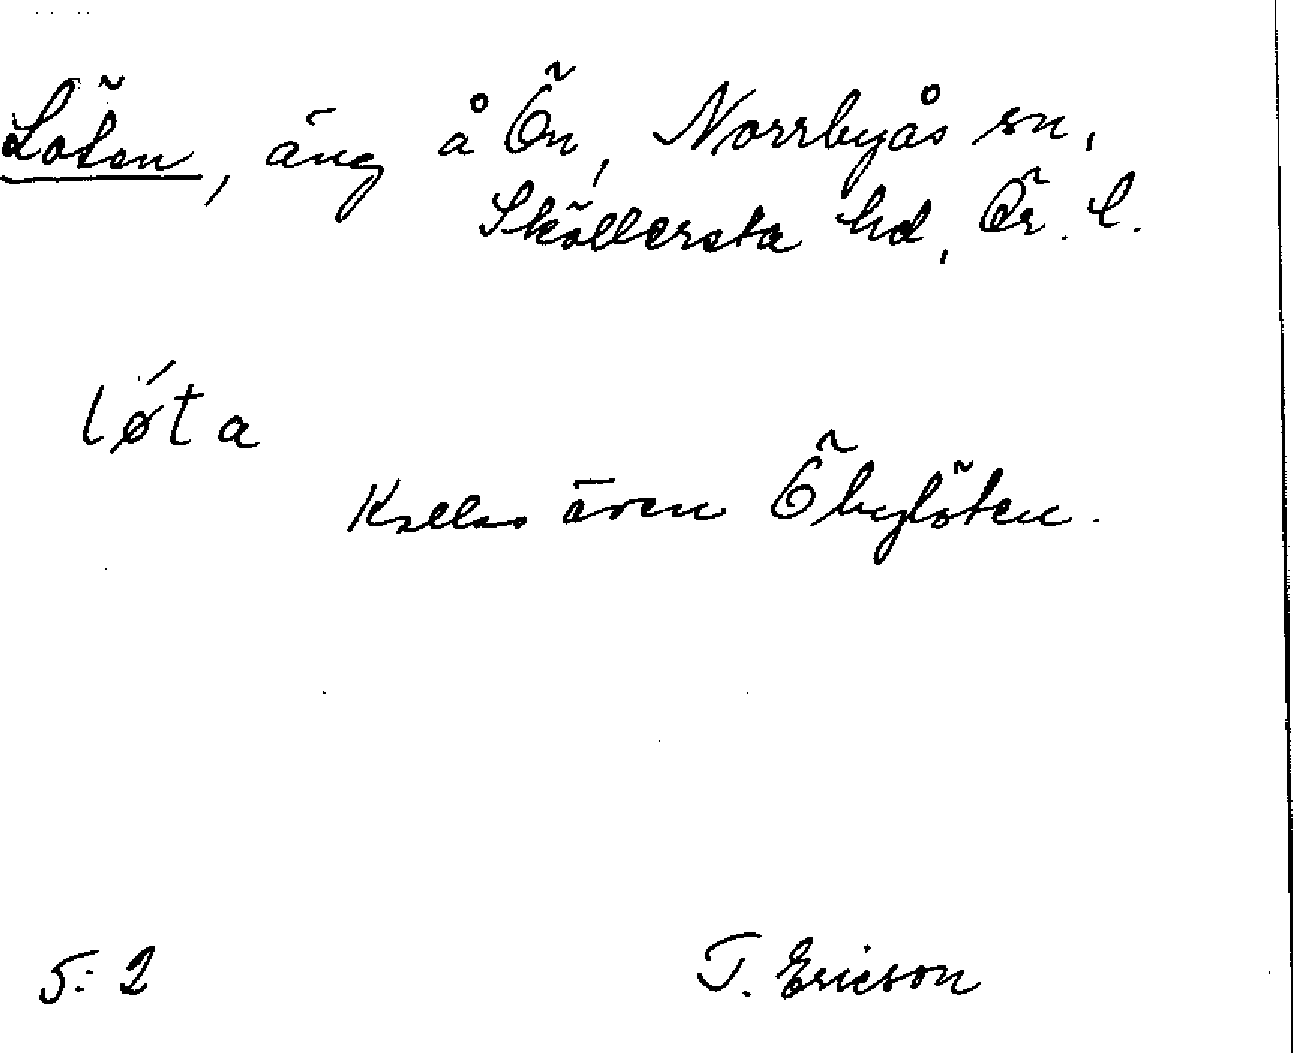 Löten, äng å Ön, Norrbyås sn,
Sköllersta hd, Ör. l.
lǿta
Kallas även Öbylöten.
5:2
T. Ericson